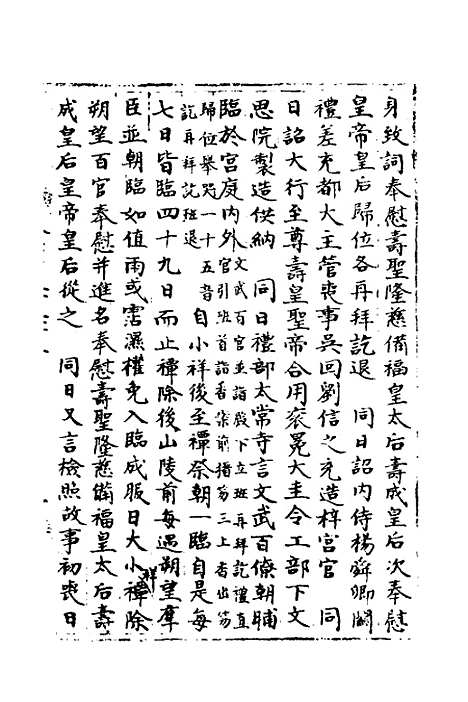 身致詞奉慰壽聖隆慈備福皇太后壽成皇后次奉慰
皇帝皇后歸位各再拜訖退　同日詔內侍楊舜卿關
禮差充都大主管喪事吳回劉信之充造梓宮官　同
日詔大行至尊壽皇聖帝合用衮冕大圭令工部下文
思院製造供納　同日禮部太常寺言文武百僚朝晡
臨於宮庭內外文武百官並詣殿下立班再拜訖禮直
官引班首詣香案前搢笏三上香出笏
歸位舉哭一十五音
訖再拜訖班退自小祥後至禫祭朝一臨自是每
七日皆臨四十九日而止禫除後山陵前每遇朔望羣
臣並朝臨如值雨或霑濕權免入臨成服日大小祥禫除
朔望百官奉慰并進名奉慰壽聖隆慈備福皇太后壽
成皇后皇帝皇后從之　同日又言檢照故事初喪日